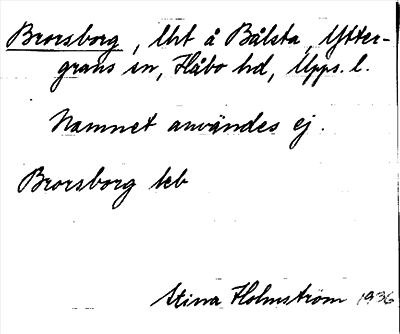 Brorsborg, lht å Bålsta, Ytter-
grans sn, Håbo hd, Upps. l.
Namnet användes ej.
Brorsborg leb
Stina Holmström 1936